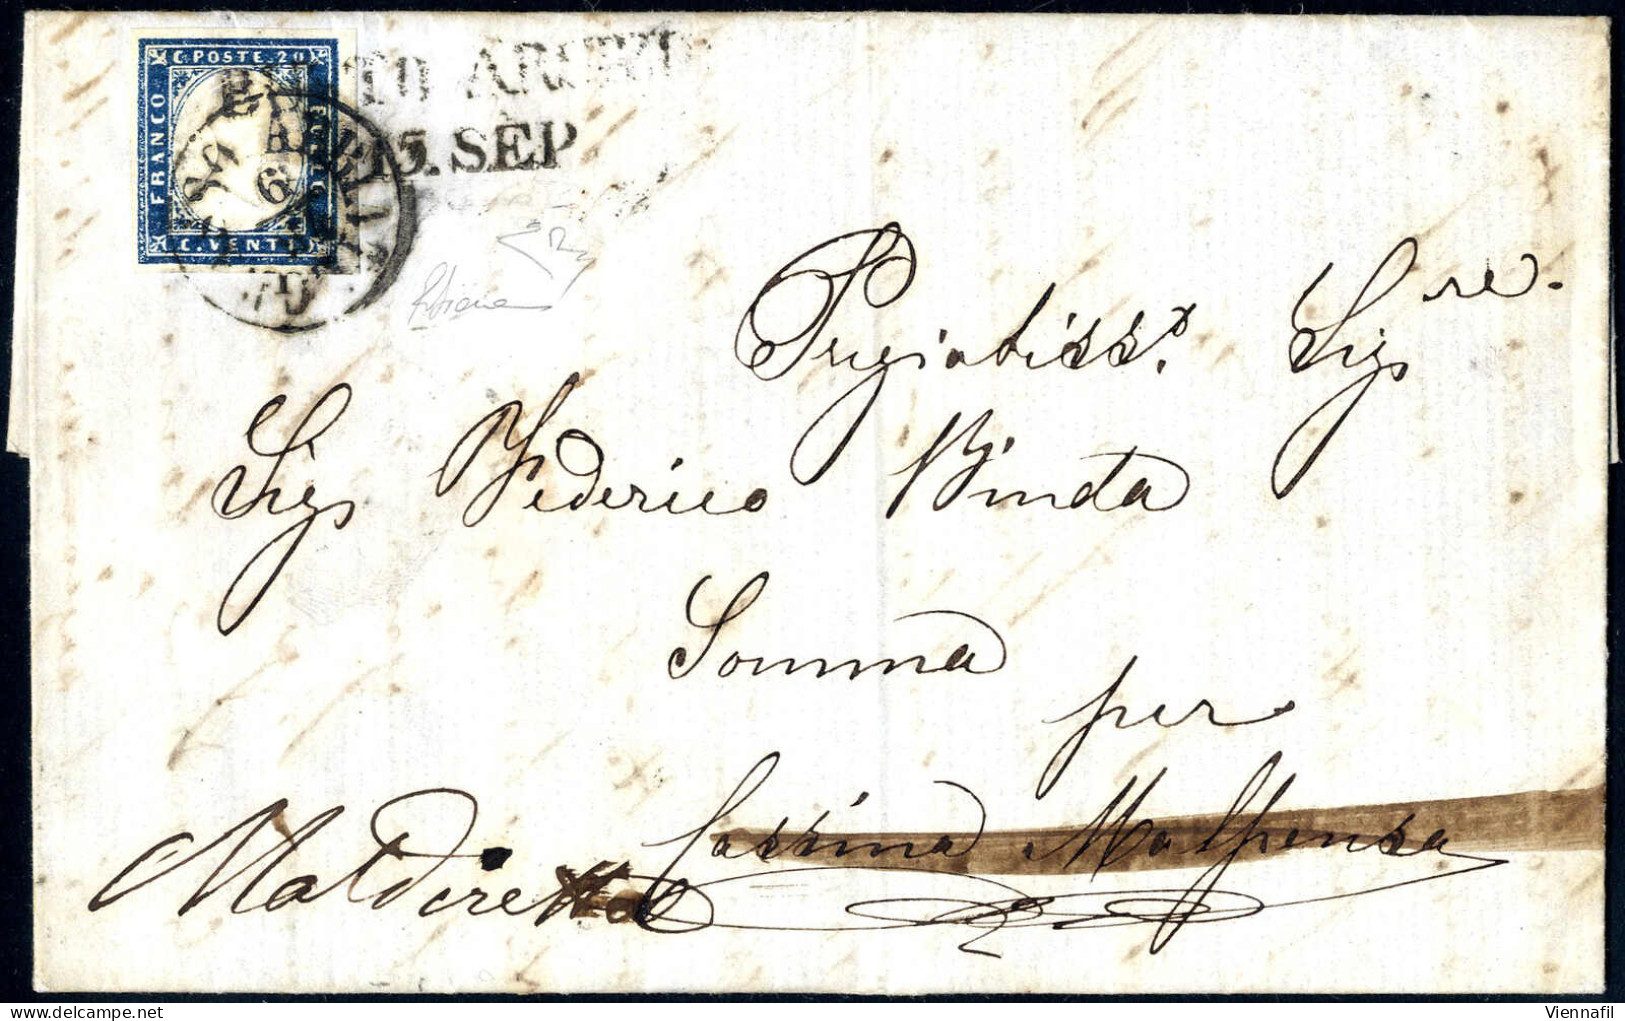 C. POSTE. 20
FRANCO
BOLLO
C. VENTI
BUSTO ARSIZIO
15. SEP
Pregiatiss.º Sigre.
Sigr Federico Binda
Somma
per
Cassina Malpensa
Maldiretta
Viennafil